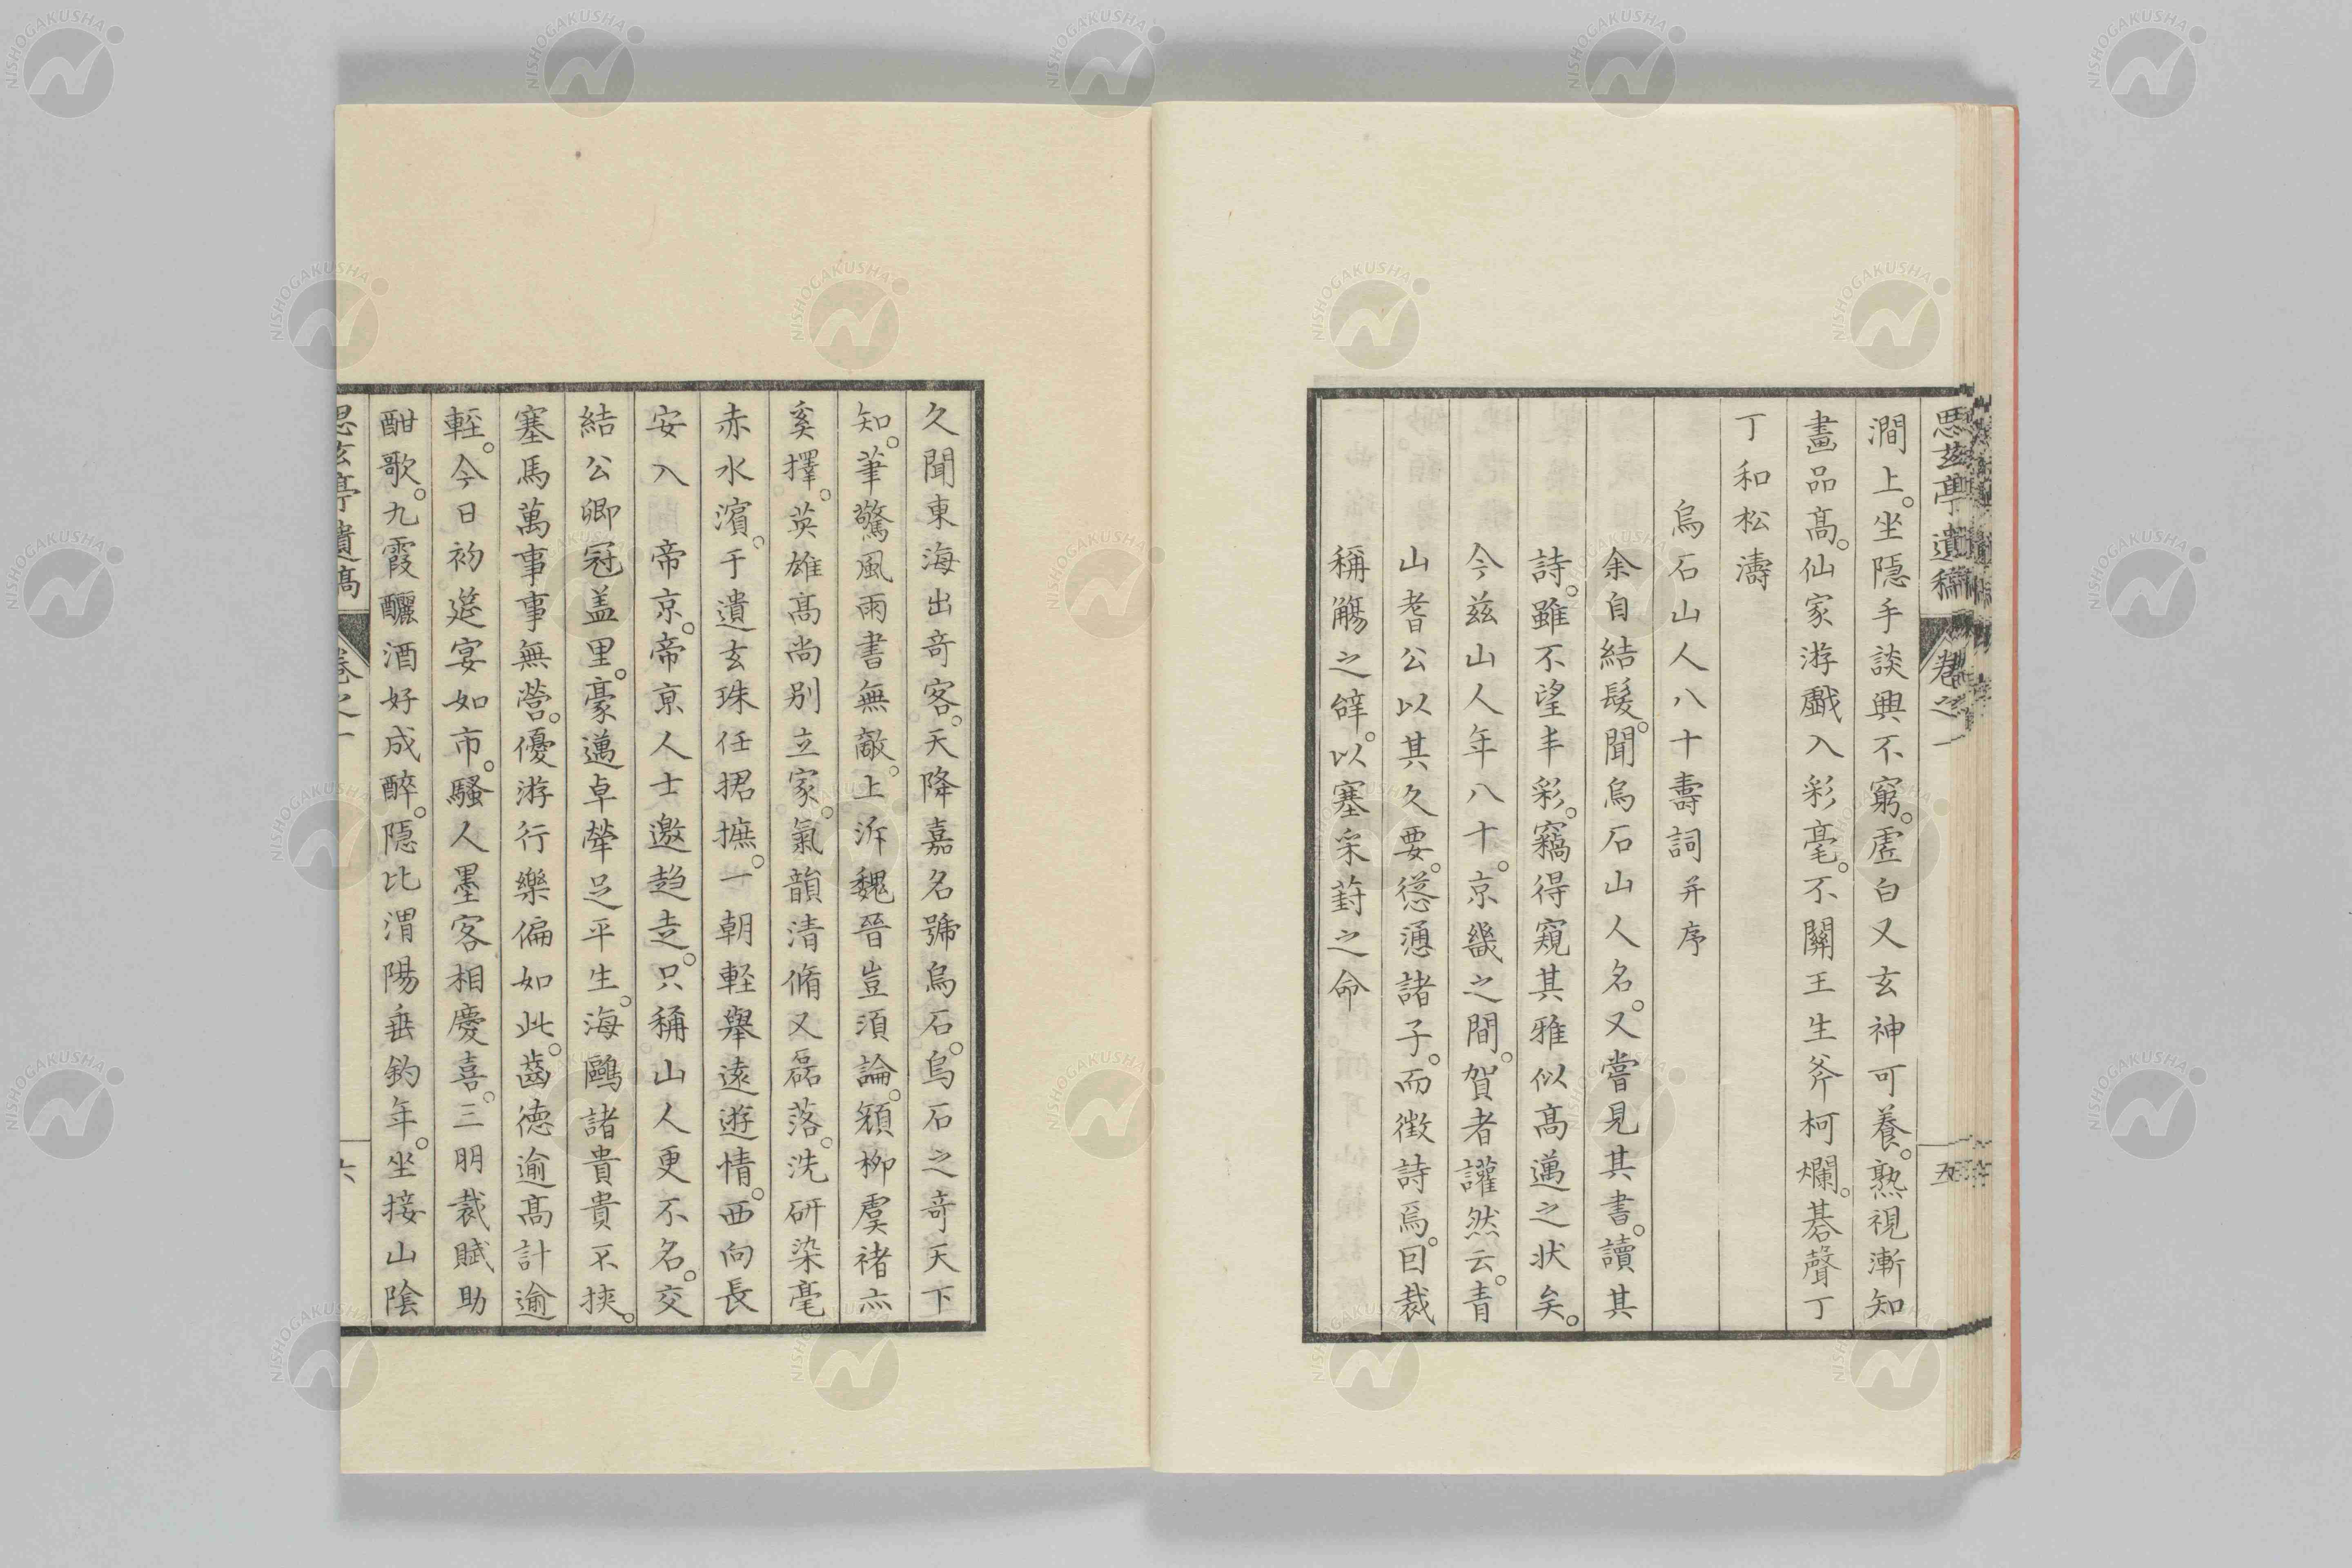 思玆亭遺稿 卷之一 五
澗上。坐隱手談興不窮。虛白又玄神可養。熟視漸知
畫品高。仙家游戲入彩毫。不關王生斧柯爛。碁聲丁
丁和松濤
烏石山人八十壽詞并序
余自結髮。聞烏石山人名。又嘗見其書。讀其
詩。雖不望丰彩。竊得窺其雅似高邁之狀矣。
今茲山人年八十。京畿之間。賀者讙然云。青
山耆公以其久要。慫慂諸子。而徵詩焉。因裁
稱觴之辭。以塞采葑之命
久聞東海出奇客。天降嘉名號烏石。烏石之奇天下
知。筆驚風雨書無敵。上泝魏晉豈須論。顔柳虞褚亦
奚擇。英雄高尚別立家。氣韻清脩又磊落。洗研染毫
赤水濱。于遺玄珠任捃摭。一朝輕舉遠遊情。西向長
安入 帝京。帝京人士邀趨走。只稱山人更不名。交
結公卿冠盖里。豪邁卓犖足平生。海鷗諸貴貴不挾。
塞馬萬事事無營。優游行樂偏如此。齒德逾高計逾
輕。今日初筵宴如市。騷人墨客相慶喜。三明裁賦助
酣歌。九霞釃酒好成醉。隱比渭陽垂釣年。坐接山陰
思玆亭遺稿 卷之一 六
NISHOGAKUSHA